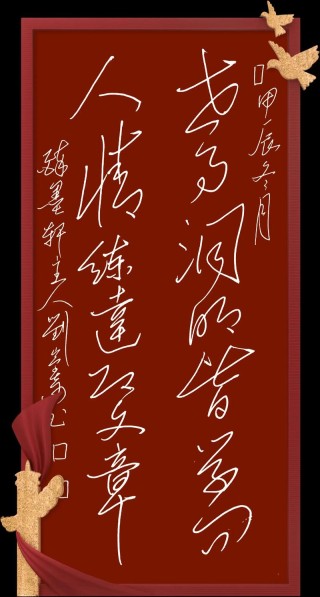 甲辰冬月
世事洞明皆学问
人情练达即文章
墨轩主人劉